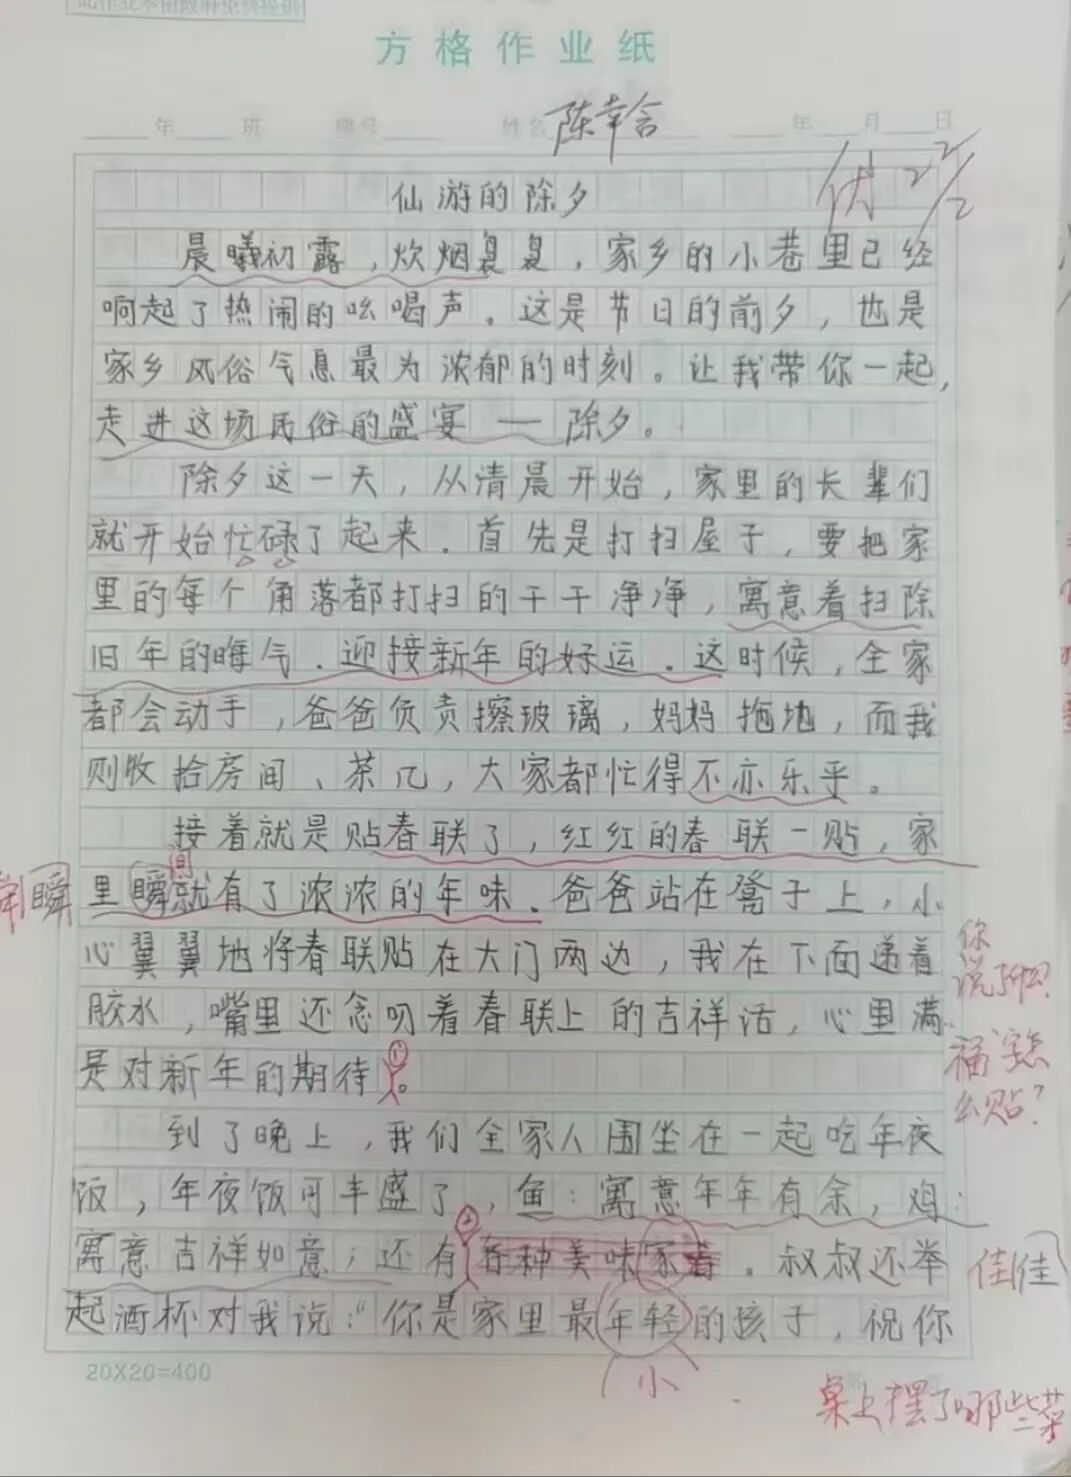 方格作业纸
年 班 姓名 陈幸含 年 月 日
优 2/2
仙游的除夕
晨曦初露，炊烟袅袅，家乡的小巷里已经
响起了热闹的吆喝声。这是节日的前夕，也是
家乡风俗气息最为浓郁的时刻。让我带你一起，
走进这场民俗的盛宴——除夕。
除夕这一天，从清晨开始，家里的长辈们
就开始忙碌了起来。首先是打扫屋子，要把家
里的每个角落都打扫的干干净净，寓意着扫除
旧年的晦气．迎接新年的好运．这时候，全家
都会动手，爸爸负责擦玻璃，妈妈拖地，而我
则收拾房间、茶几，大家都忙得不亦乐乎。
接着就是贴春联了，红红的春联一贴，家
瞬 里瞬间就有了浓浓的年味．爸爸站在凳子上，小
心翼翼地将春联贴在大门两边，我在下面递着
你说了什么？
胶水，嘴里还念叨着春联上的吉祥话，心里满
福字怎么贴？
是对新年的期待①。
到了晚上，我们全家人围坐在一起吃年夜
饭，年夜饭可丰盛了，鱼：寓意年年有余，鸡：
寓意吉祥如意；还有②各种美味家着．叔叔还举 佳佳
起酒杯对我说：“你是家里最年轻的孩子，祝你
小
20X20=400
桌上摆了哪些菜